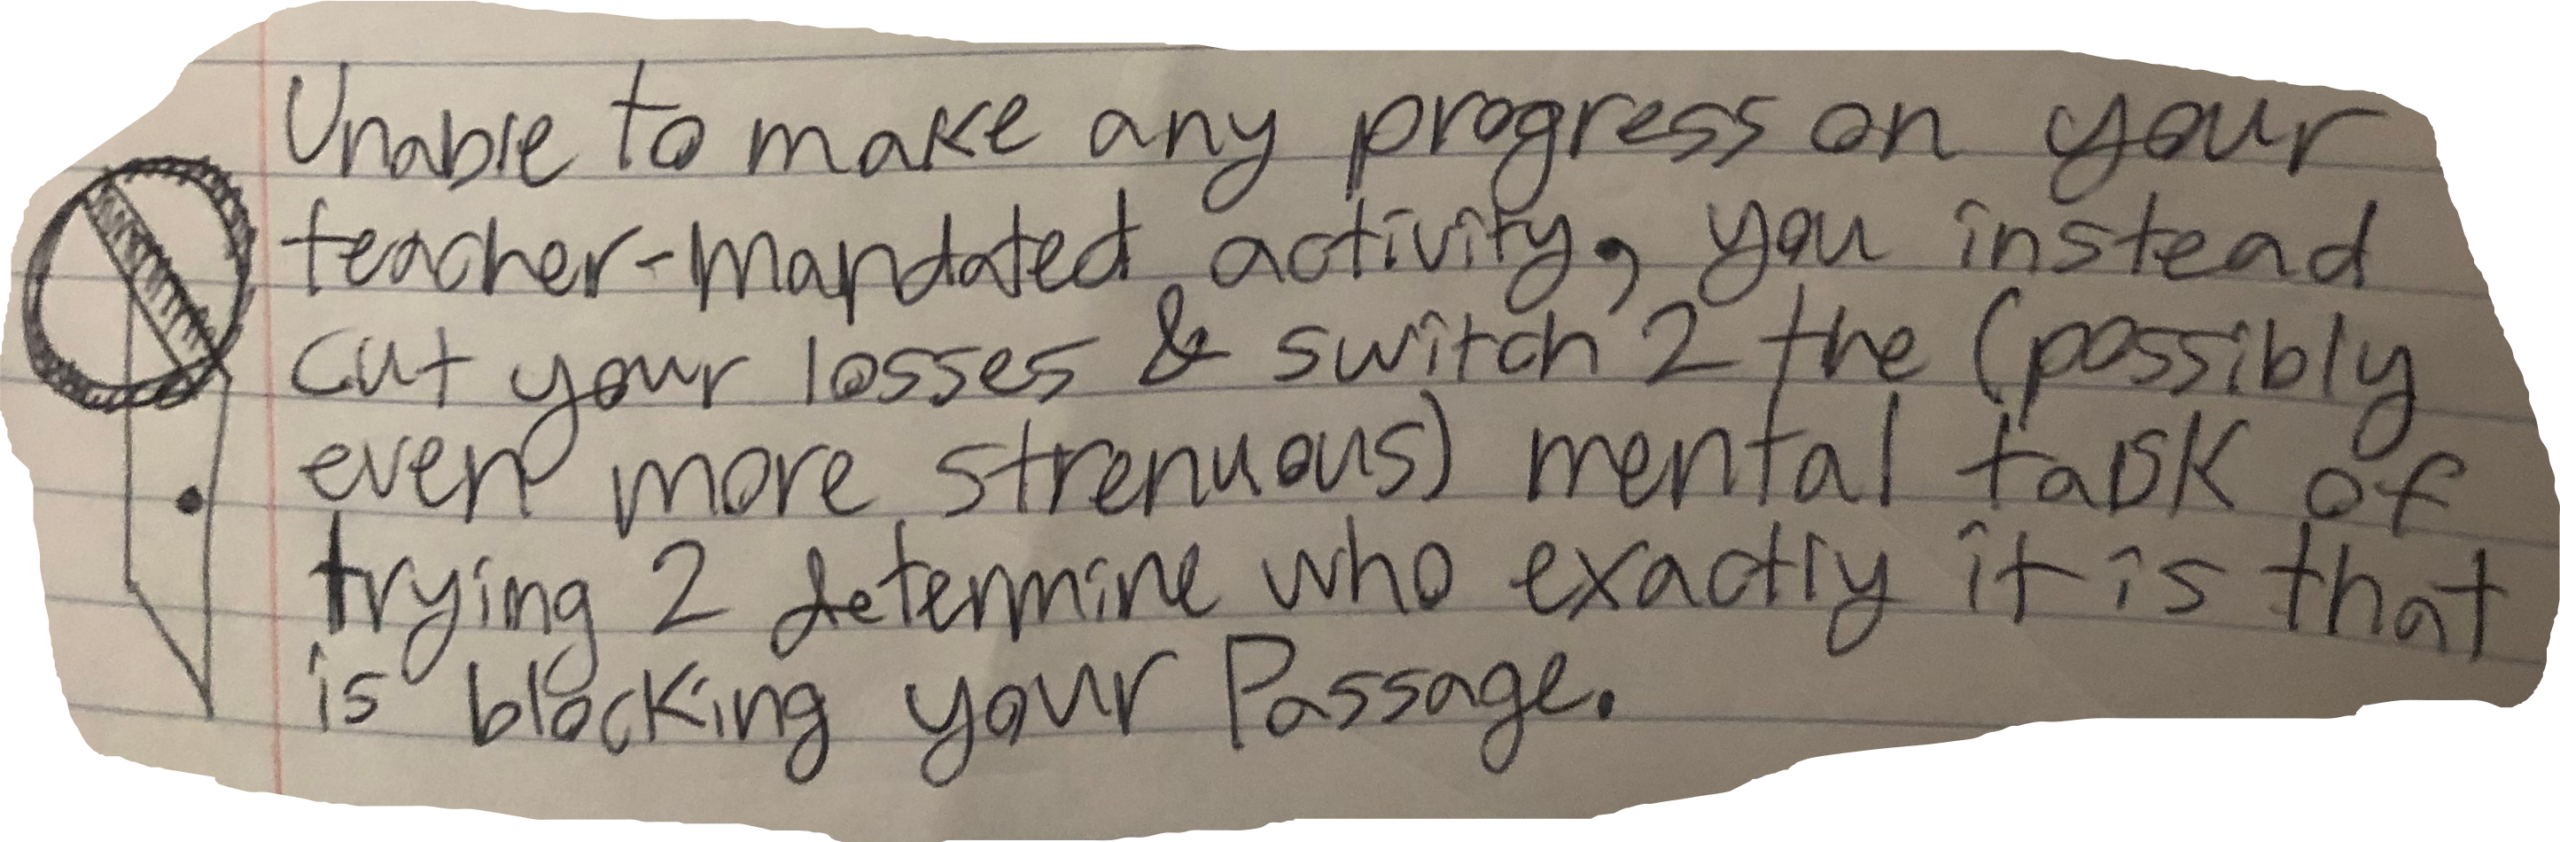 Unable to make any progress on your
teacher-mandated activity, you instead
cut your losses & switch 2 the (possibly
even more strenuous) mental task of
trying 2 determine who exactly it is that
is blocking your Passage.